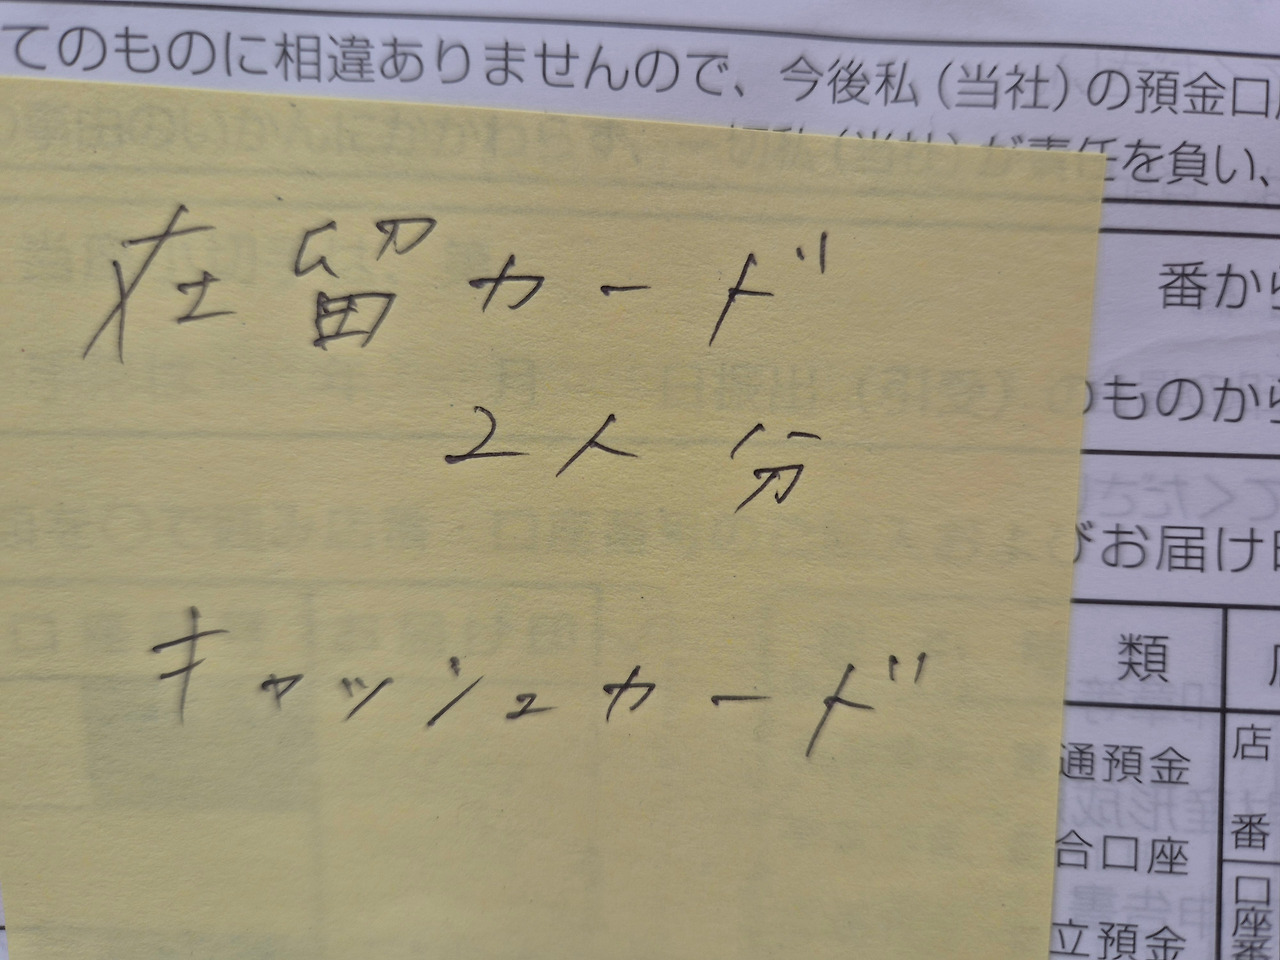 てのものに相違ありませんので、今後私（当社）の預金口
責任を負い、
番から
のものから
びお届け
在留カード
2人分
キャッシュカード
類
通預金
店
番
合口座
口
座
番
立預金